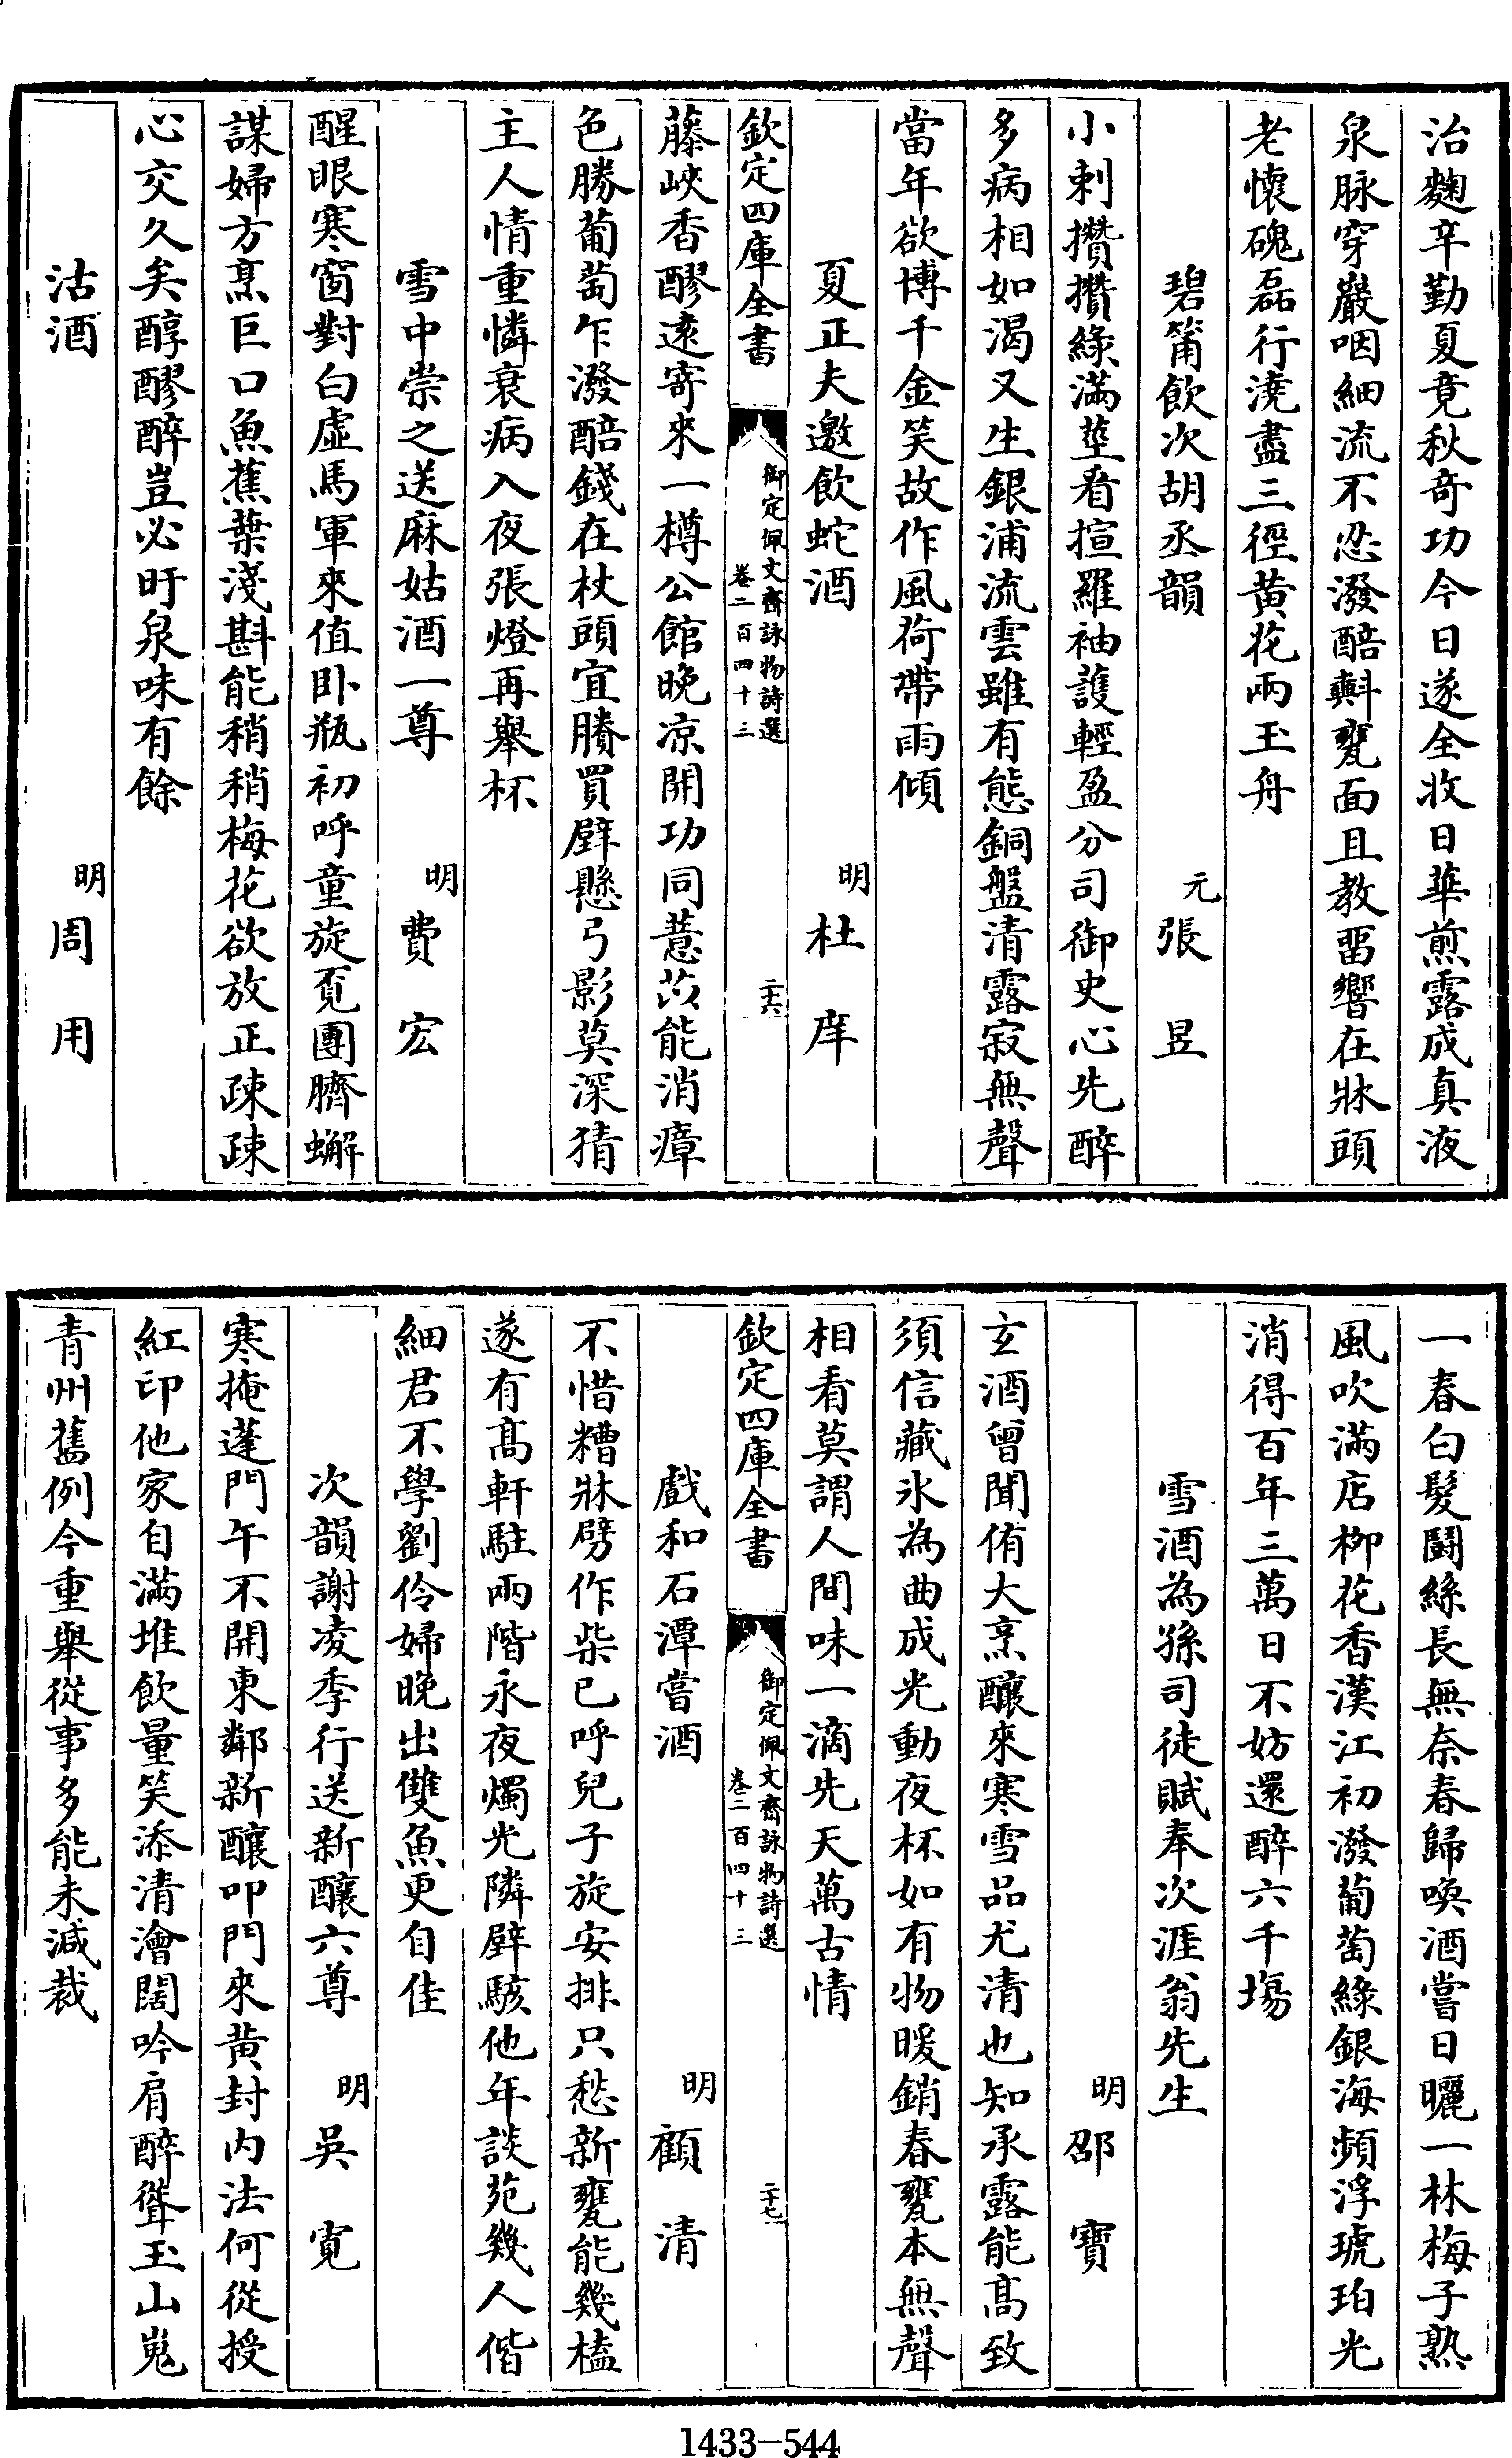 治麴辛勤夏竟秋奇功今日遂全收日華煎露成真液
泉脉穿巖咽細流不忍潑醅㪺甕面且教留響在牀頭
老懷磈磊行澆盡三徑黄花兩玉舟
碧筩飲次胡丞韻
元張昱
小刺攢攢綠滿莖看揎羅袖護輕盈分司御史心先醉
多病相如渴又生銀浦流雲雖有態銅盤清露寂無聲
當年欲博千金笑故作風荷帶雨傾
夏正夫邀飲蛇酒
明杜庠
欽定四庫全書
御定佩文齋詠物詩選
卷二百四十三
二十六
藤峽香醪遠寄來一樽公館晚凉開功同薏苡能消瘴
色勝葡萄乍潑醅錢在杖頭宜賸買壁懸弓影莫深猜
主人情重憐衰病入夜張燈再舉杯
雪中崇之送麻姑酒一尊
明費宏
醒眼寒窗對白虛馬軍來值卧瓶初呼童旋覓團臍蠏
謀婦方烹巨口魚蕉葉淺斟能稍稍梅花欲放正疎疎
心交久矣醇醪醉豈必盱泉味有餘
沽酒
明周用
一春白髮鬬絲長無奈春歸喚酒嘗日曬一林梅子熟
風吹滿店栁花香漢江初潑葡萄綠銀海頻浮琥珀光
消得百年三萬日不妨還醉六千塲
雪酒為孫司徒賦奉次涯翁先生
明邵寶
玄酒曾聞侑大烹釀來寒雪品尤清也知承露能髙致
須信藏氷為曲成光動夜杯如有物暖銷春甕本無聲
相看莫謂人間味一滴先天萬古情
欽定四庫全書
御定佩文齋詠物詩選
卷二百四十三
二十七
戲和石潭嘗酒
明顧清
不惜糟牀劈作柴已呼兒子旋安排只愁新甕能幾榼
遂有髙軒駐兩階永夜燭光隣壁駭他年談苑幾人偕
細君不學劉伶婦晚出雙魚更自佳
次韻謝凌季行送新釀六尊
明吳寛
寒掩蓬門午不開東鄰新釀叩門來黄封内法何從授
紅印他家自滿堆飲量笑添清澮闊吟肩醉聳玉山嵬
青州舊例今重舉從事多能未減裁
1433-544